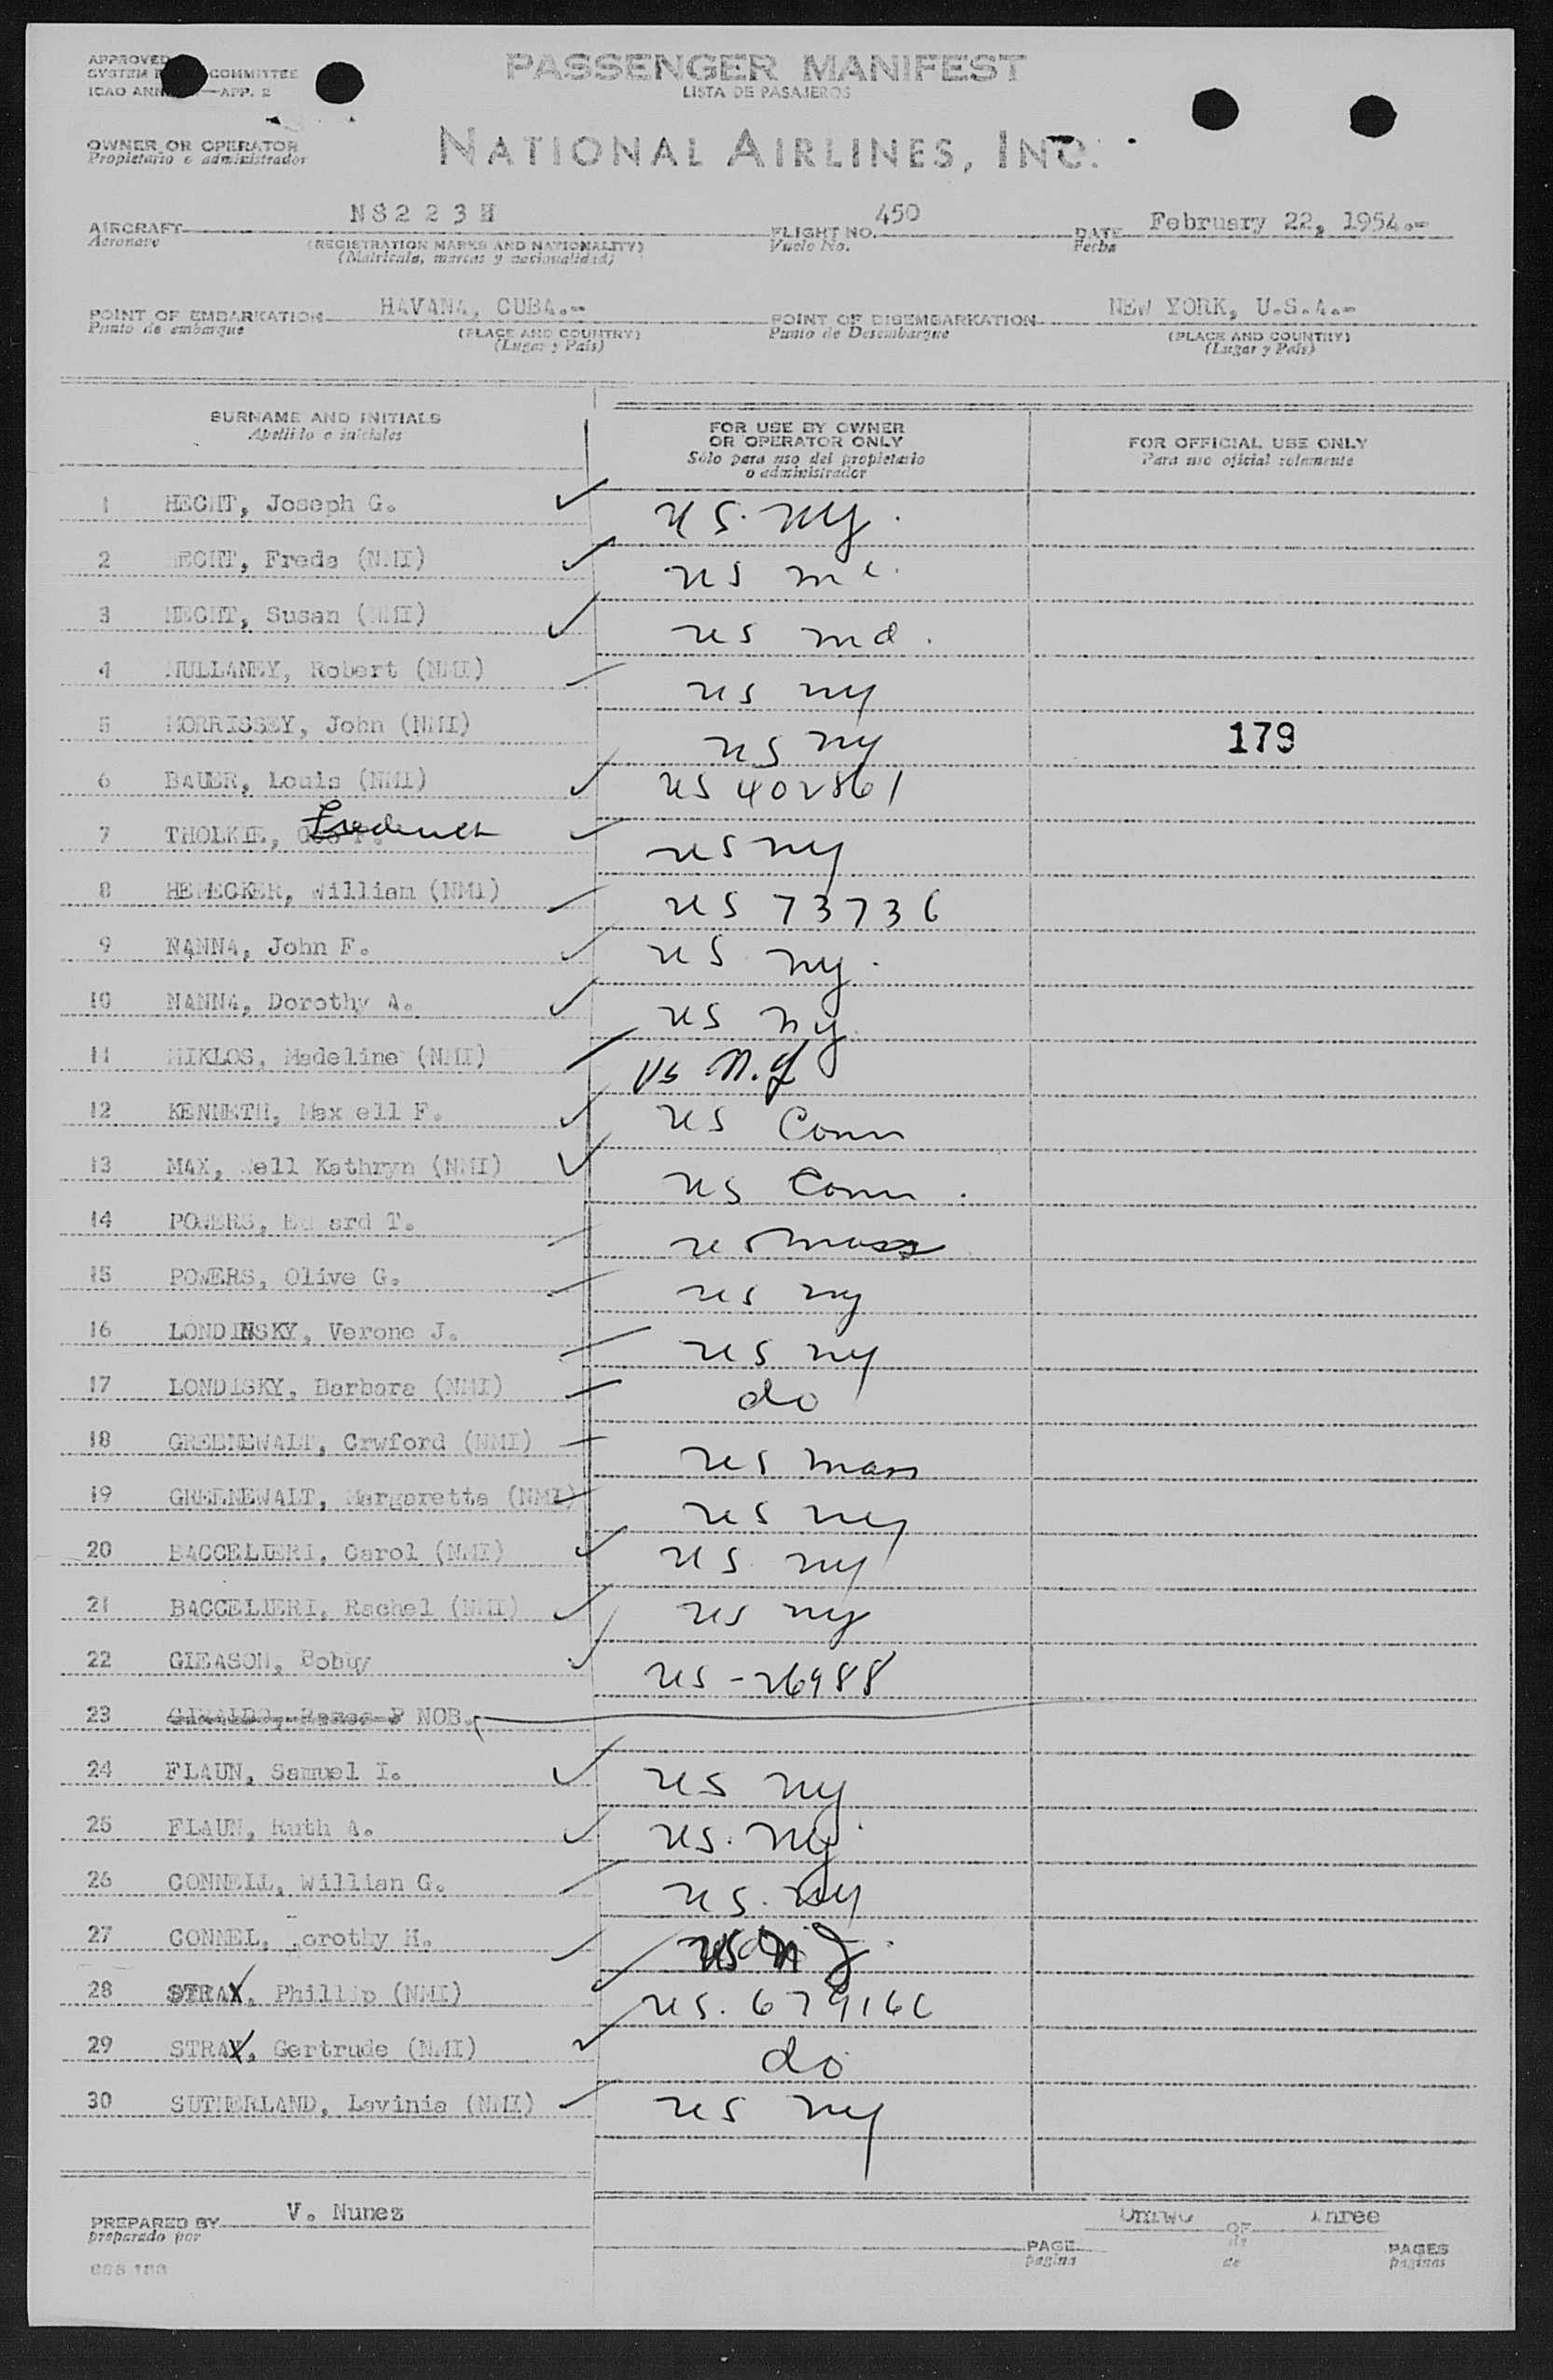 APPROVED
SYSTEM COMMITTEE
ICAO —APP. 2
PASSENGER MANIFEST
LISTA DE PASAJEROS
OWNER OR OPERATOR
Propietario o administrador
NATIONAL AIRLINES, INC.
AIRCRAFT N8223H FLIGHT NO. 450 DATE February 22, 1954.-
Aeronave (REGISTRATION MARKS AND NATIONALITY) Vuelo No. Fecha
(Matricula, marcas y nacionalidad)
POINT OF EMBARKATION HAVANA, CUBA.- POINT OF DISEMBARKATION NEW YORK, U.S.A.-
Punto de embarque (PLACE AND COUNTRY) Punto de Desembarque (PLACE AND COUNTRY)
(Lugar y Pais) (Lugar y Pais)
SURNAME AND INITIALS
Apellido e iniciales
FOR USE BY OWNER
OR OPERATOR ONLY
Sólo para uso del propietario
o administrador
FOR OFFICIAL USE ONLY
Para uso oficial solamente
1 HECHT, Joseph G. US. NY.
2 HECHT, Freda (NMI) US
3 HECHT, Susan (NMI) US md.
4 MULLANEY, Robert (NMI) US NY
5 MORRISSEY, John (NMI) US NY 179
6 BAUER, Louis (NMI) US 402861
7 THOLKIE, Frederick US NY
8 HENECKER, William (NMI) US 73736
9 NANNA, John F. US NY.
10 NANNA, Dorothy A. US NY.
11 MIKLOS, Madeline (NMI) US N.J
12 KENNETH, Max ell F. US Conn
13 MAX, Well Kathryn (NMI) US Conn.
14 POWERS, Ed ard T. US Mass
15 POWERS, Olive G. US NY
16 LONDINSKY, Verone J. US NY
17 LONDISKY, Barbara (NMI) do
18 GREENEWALT, Crwford (NMI) US Mass
19 GREENEWALT, Margaretta (NMI) US NY
20 BACCELIERI, Carol (NMI) US NY
21 BACCELIERI, Rachel (NMI) US NY
22 GLEASON, Bobby US - 26988
23 GIRALDO, P NOB.
24 FLAUN, Samuel I. US NY
25 FLAUN, Ruth A. US. NY.
26 CONNELL, Willian G. US. NY
27 CONNEL, Dorothy H. US N J.
28 STRAX, Phillip (NMI) US. 679166
29 STRAX, Gertrude (NMI) do
30 SUTHERLAND, Lavinia (NMI) US NY
PREPARED BY V. Nunez
preparado por
PAGE OF Three PAGES
pagina de paginas